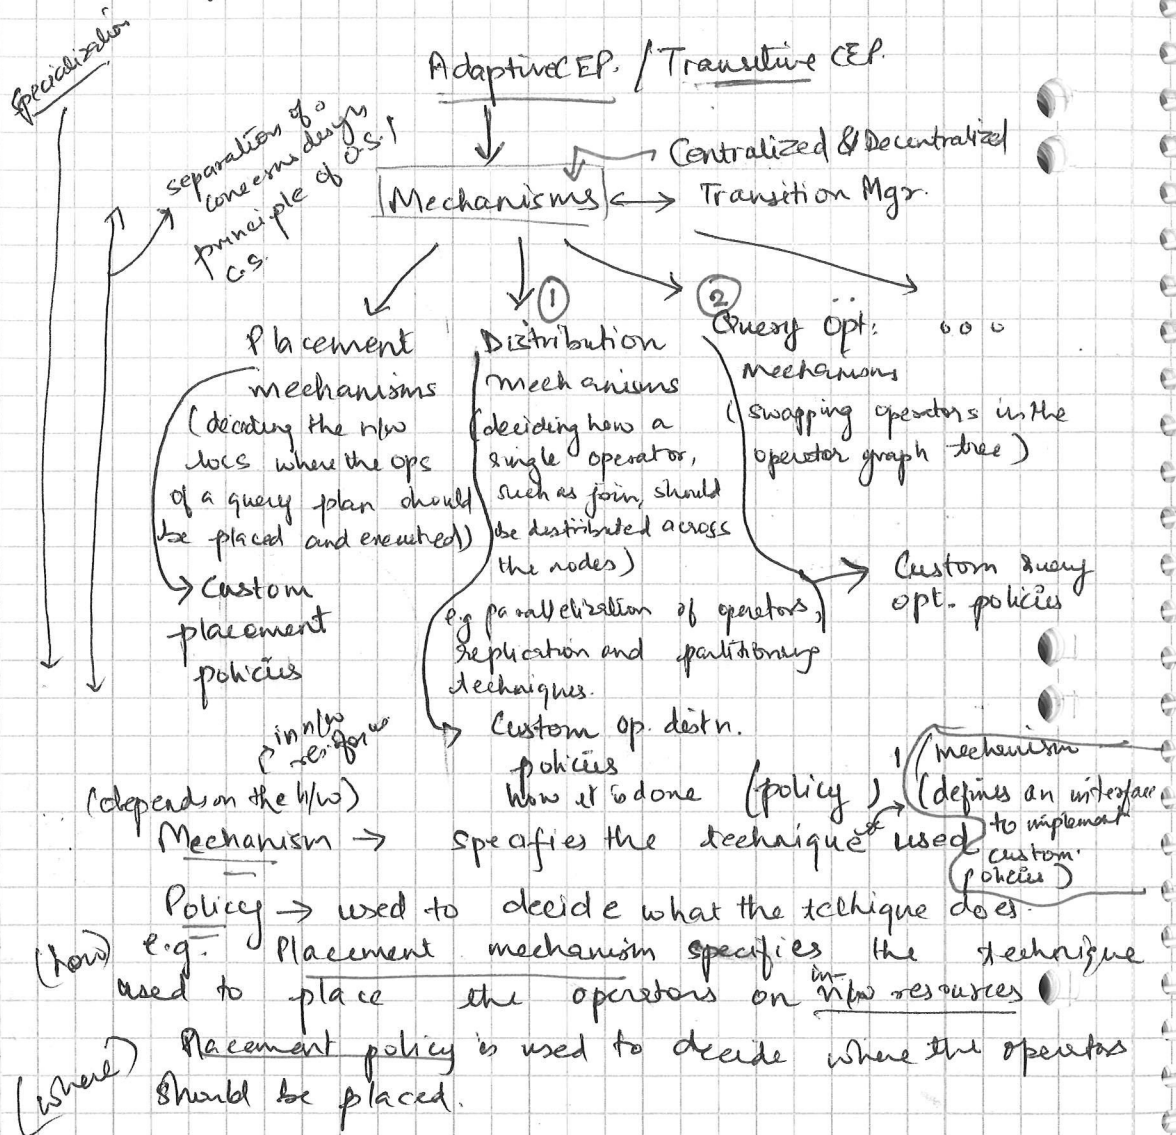 Specialization
AdaptiveCEP. / Transitive CEP.
separation of
concerns design
principle of O.S.!
C.S.
Centralized & Decentralized
Mechanisms
Transition Mgr.
Placement
mechanisms
(deciding the n/w
locs where the ops
of a query plan should
be placed and executed)
Custom
placement
policies
1
Distribution
mechanisms
(deciding how a
single operator,
such as join, should
be distributed across
the nodes)
e.g parallelization of operators,
replication and partitioning
techniques.
Custom op. distn.
policies
2
Query opt:
Mechanisms
(swapping operators in the
operator graph tree)
Custom query
opt. policies
in n/w
(depends on the h/w)
how it is done (policy)
Mechanism → specifies the technique* used
(mechanism
(defines an interface
to implement
custom
policies)
Policy → used to decide what the tchique does.
(how) e.g. Placement mechanism specifies the technique
used to place the operators on in-n/w resources
(where) Placement policy is used to decide where the operators
should be placed.